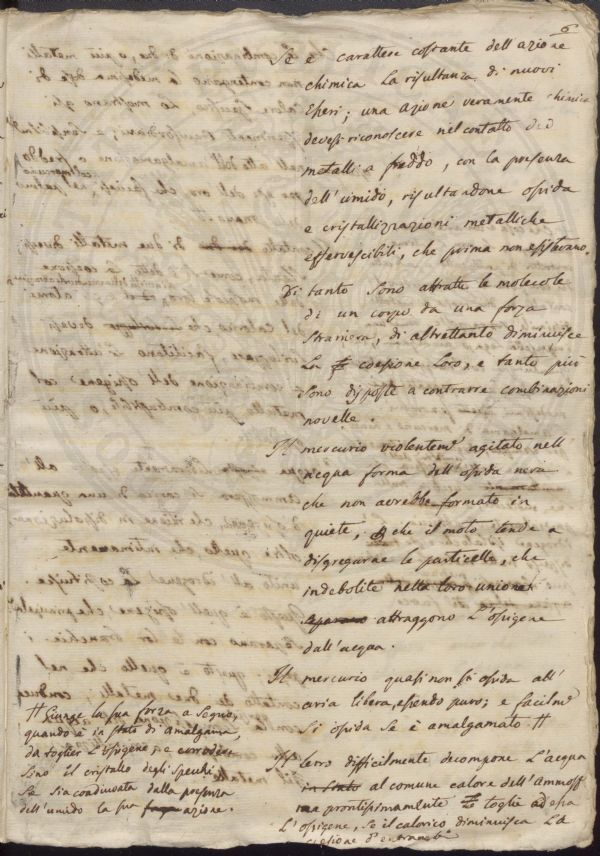 6
Se è carattere costante dell'azione
chimica la risultanza di nuovi
Esseri; una azione veramente chimica
devesi riconoscere nel contatto de'
metalli a freddo, con la presenza
dell'umido, risultandone ossida
e cristallizzazioni metalliche
effervescibili, che prima non esistevano.
Di tanto sono attratte le molecole
di un corpo da una forza
straniera, di altrettanto diminuisce
la coesione loro, e tanto più
sono disposte a contrarre combinazioni
novelle.
Il mercurio violentemte agitato nell'
acqua forma dell'ossida nera
che non avrebbe formato in
quiete; che il moto tende a
disgregarne le particelle, che
indebolite nella loro unione
attraggono l'ossigene
dall'acqua.
Il mercurio quasi non si ossida all'
aria libera, essendo puro; e facilmte
si ossida se è amalgamato #
# Giunge la sua forza a segno,
quando è in stato di amalgama,
da toglier l'ossigene, e corrodere
sino il cristallo degli specchi
se sia coadiuvata dalla presenza
dell'umido la sua azione.
Il ferro difficilmente decompone l'acqua
in stato al comune calore dell'Ammosf
ma prontissimamente toglie ad essa
l'ossigene, se il calorico diminuisca la
coesione